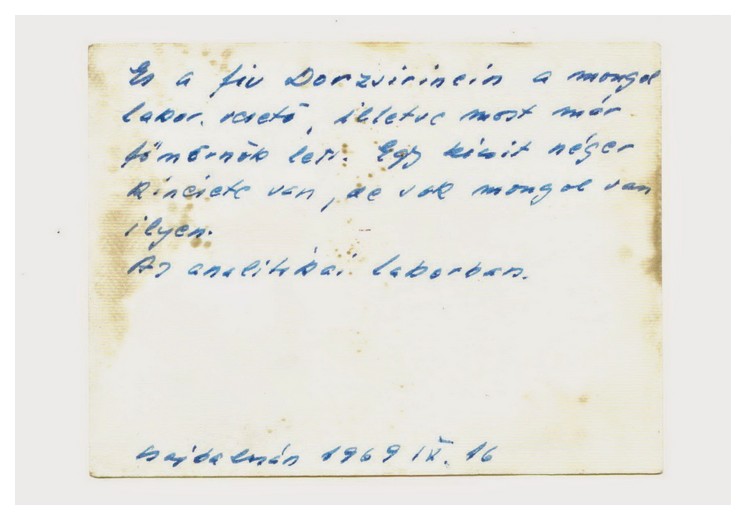 Ez a fiu Dorzsirincin a mongol
labor. vezető, illetve most már
főmérnök lett. Egy kicsit néger
kinézete van, de sok mongol van
ilyen.
Az analitikai laborban.
1969 IX. 16